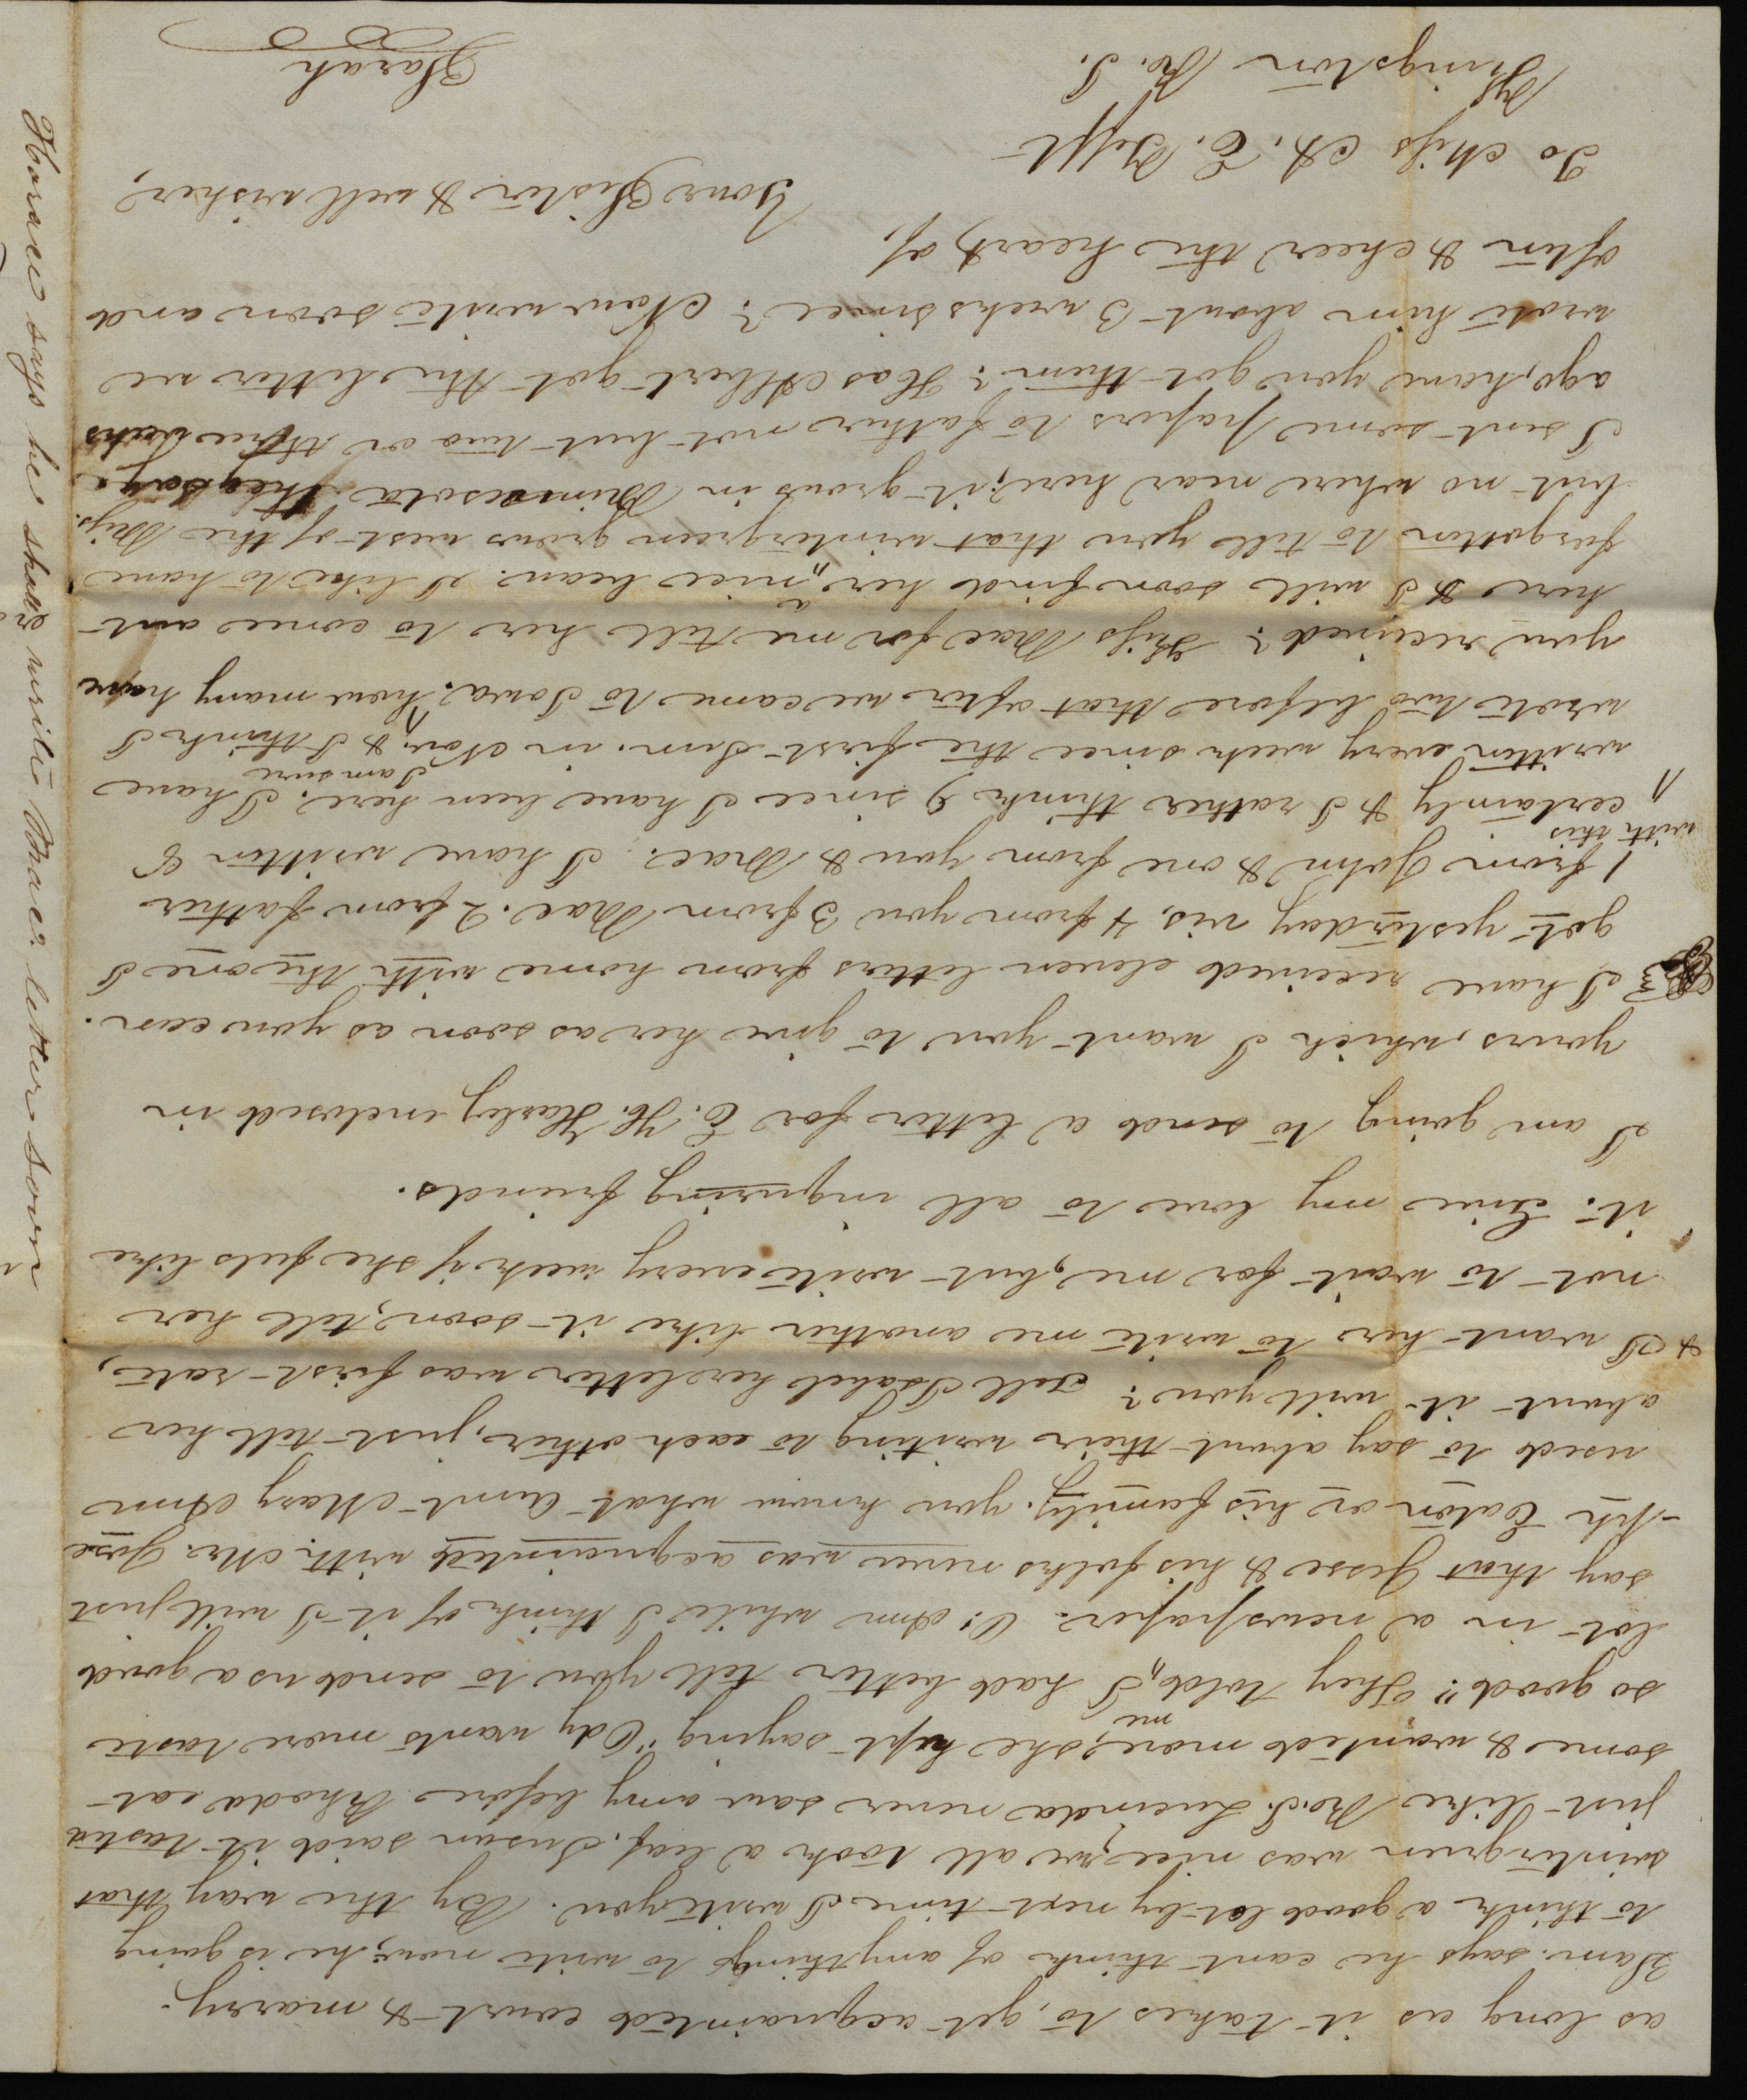 as long as it takes to, get acquainted court & marry.
Sam. says he cant think of anything to write now, he is going
to think a good lot by next time I write you. By the way that
wintergreen was nice, we all took a leaf. Susan said it tasted
just like Ro. I. Lucinda never saw any before Rhoda eat
some & wanted more, she kept saying "Ody wants more taste
so good". They told me I had better tell you to send us a good
lot in a newspaper. O! Ann while I think of it I will just
say that Jesse & his folks never was acquainted with Mr. Jose
-ph Eaton or his family. you know what Aunt Mary Ann
used to say about their writing to each other, just tell her
about it will you? Tell Isabel her letter was first-rate,
& I want her to write me another like it soon, tell her
not to wait for me, but write every week if she feels like
it. Give my love to all inquiring friends.
I am going to send a letter for E. H. Harley enclosed in
yours, which I want you to give her as soon as you can.
I have received eleven letters from home with the one I
got yesterday vis. 4 from you 3 from Mae. 2 from father
1 from John & one from you & Mae. I have written 8
with this certainly & I rather think 9 since I have been here. I have
written every week since the first Sun. in Nov. & I think I am sure I
wrote two before that after we came to Iowa. how many have
you received? Kiss Mae for me tell her to come out
here & I will soon find her a "nice beau. I like to have
forgotten to tell you that wintergreen grows west of the Miss.
but no where near here, it grows in Minnesota they say.
I sent some papers to father not but two or three weeks
ago, have you got them? Has Albert got the letter we
wrote him about 3 weeks since? Now write soon and
often & cheer the heart of,
Your Sister & well wisher,
To Miss A. E. Tefft
Kingston Ro. I.
Sarah
Horace says he shall write Mae. letter soon